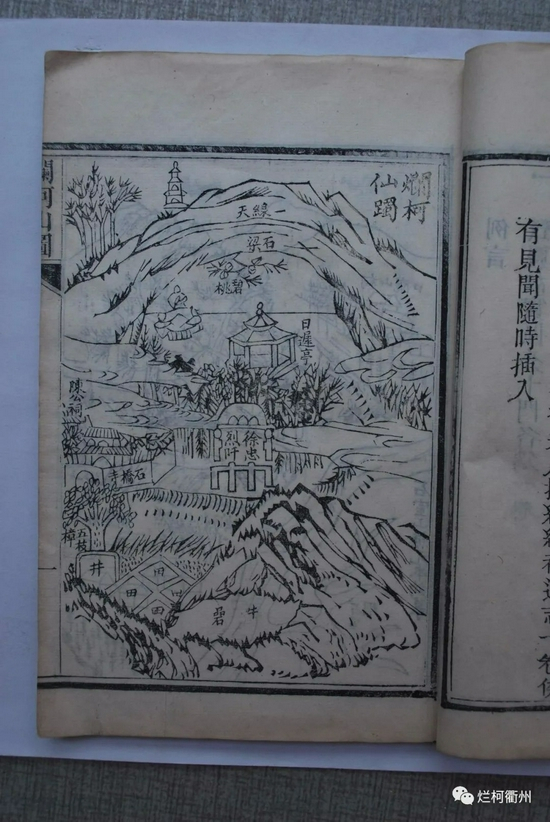 有見聞隨時插入
爛柯
仙躅
一線天
石梁
碧桃
日遲亭
徐忠
烈阡
石橋寺
五枝
樟
井
田
田
田
牛
爛柯山圖
一
烂柯衢州